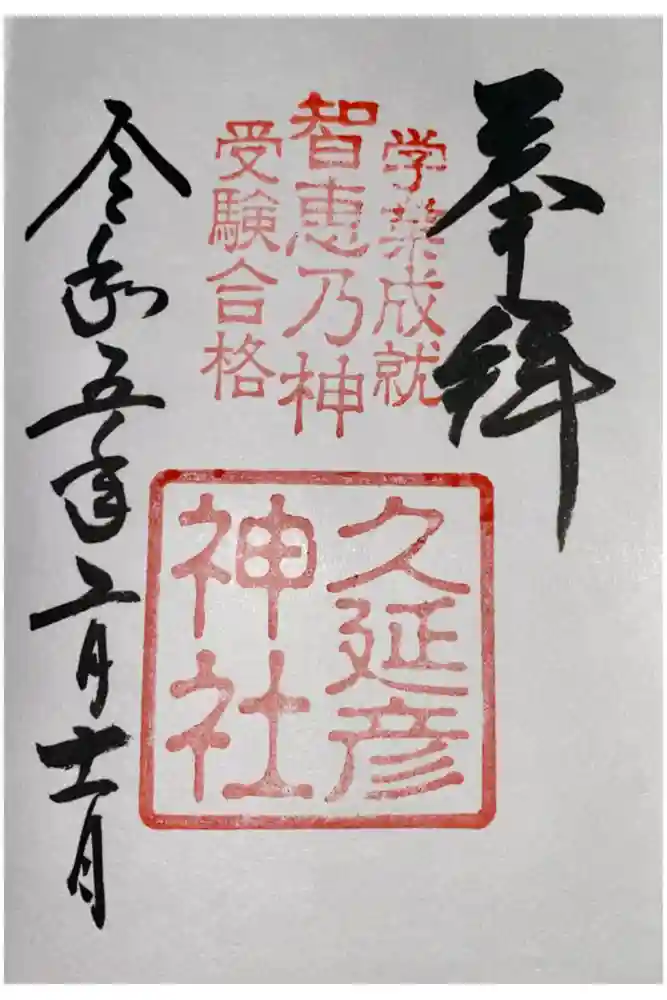 奉拝
学業成就
智恵乃神
受験合格
久延彦
神社
令和五年二月十一日